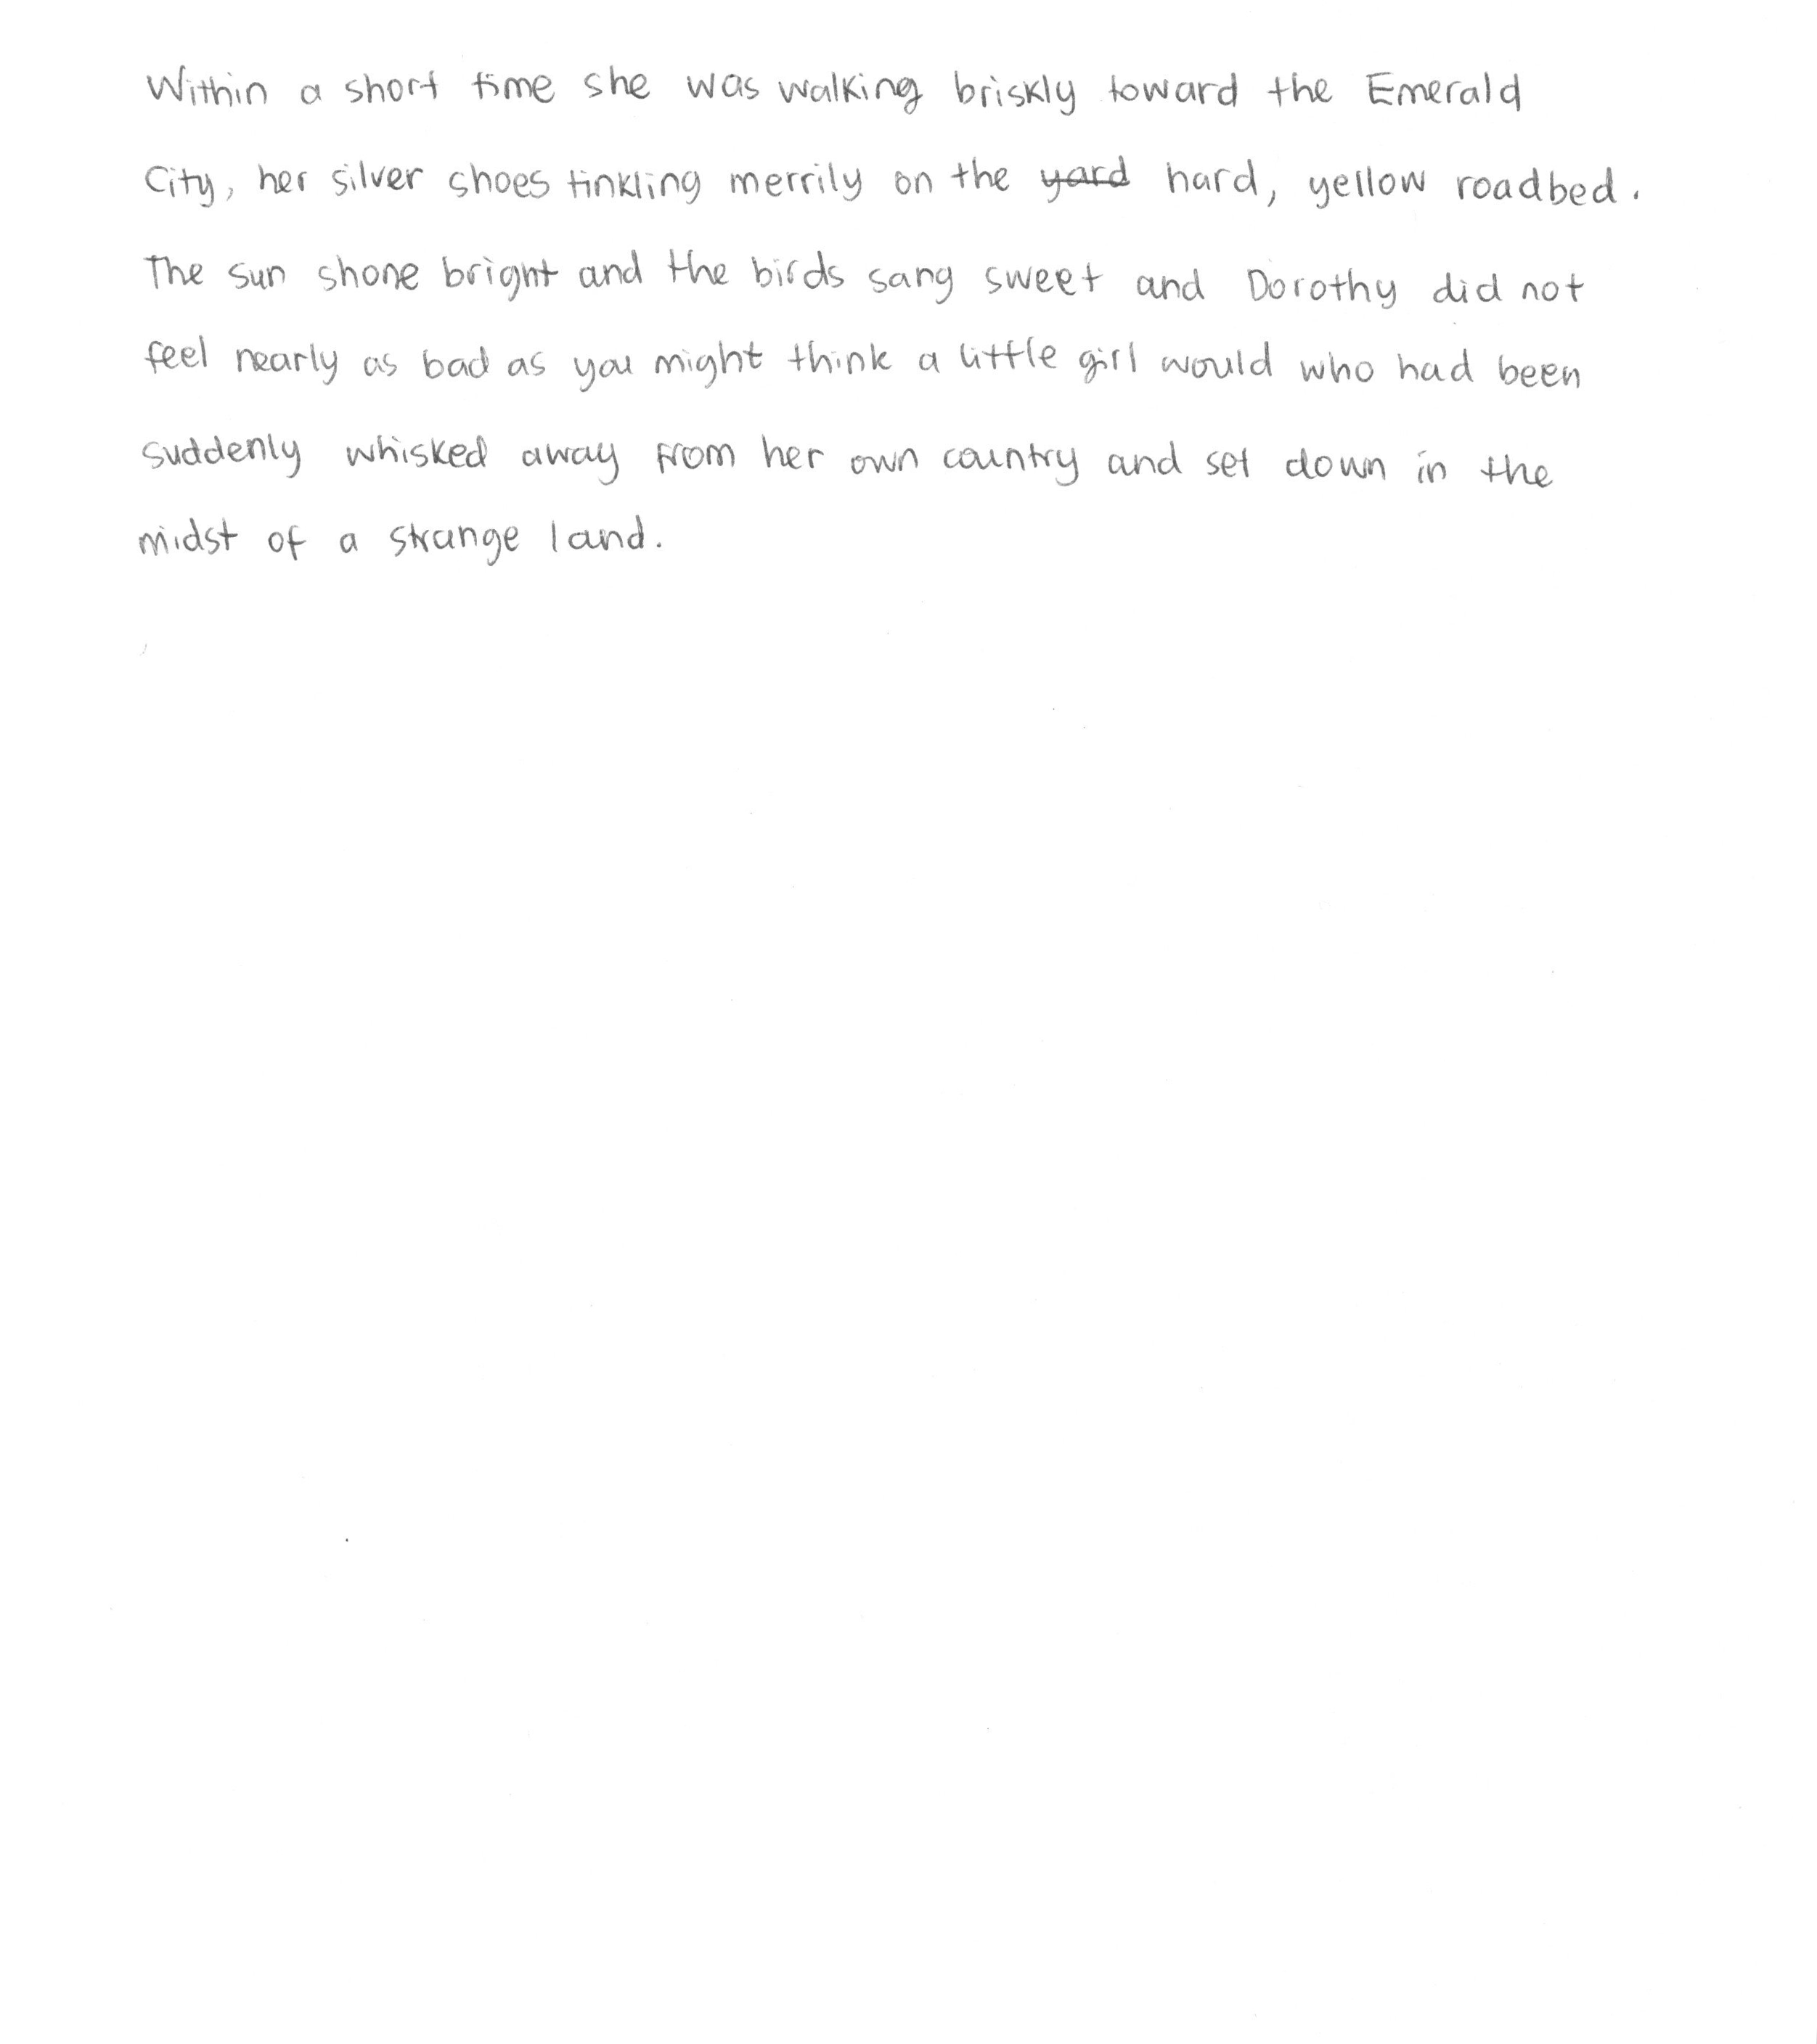 Within a short time she was walking briskly toward the Emerald
City, her silver shoes tinkling merrily on the ~~yard~~ hard, yellow roadbed.
The sun shone bright and the birds sang sweet and Dorothy did not
feel nearly as bad as you might think a little girl would who had been
suddenly whisked away from her own country and set down in the
midst of a strange land.